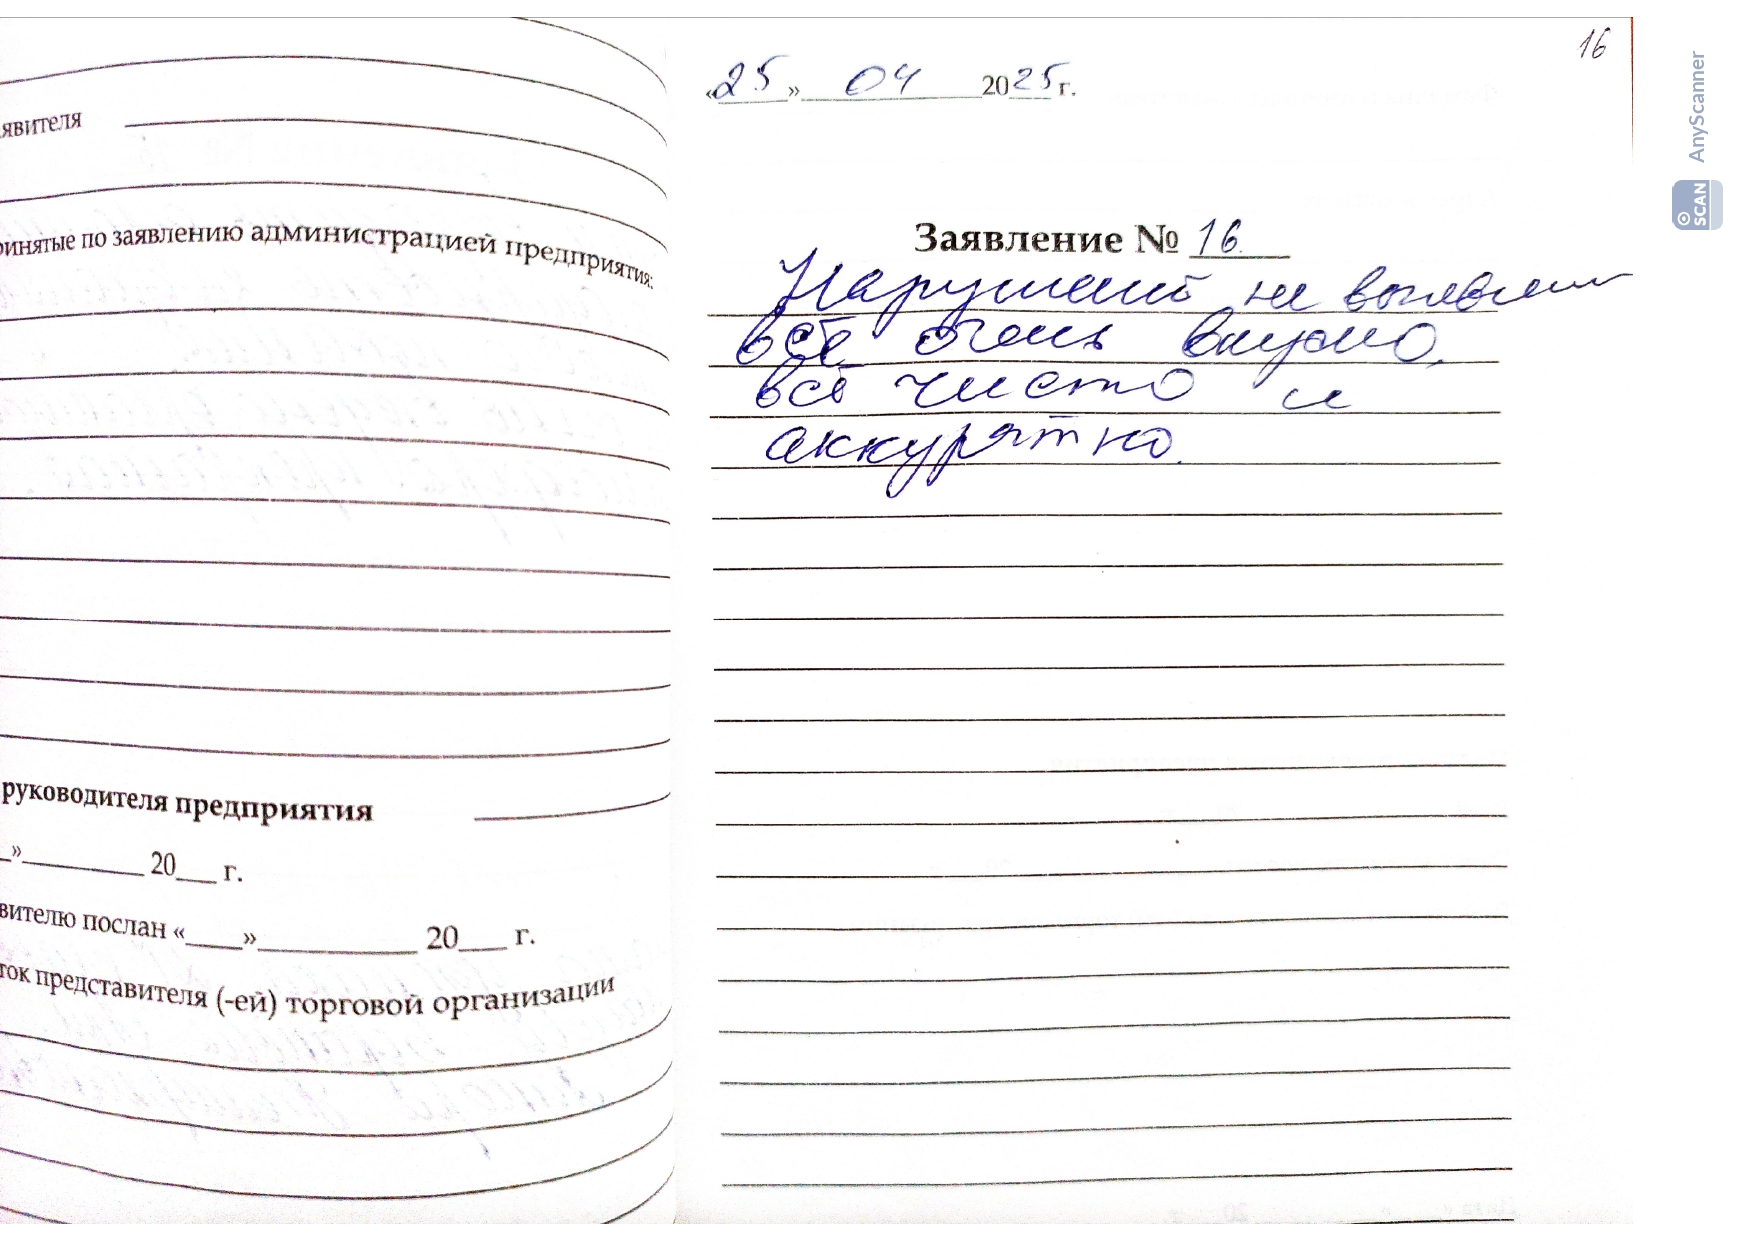 явителя
ринятые по заявлению администрацией предприятия:
руководителя предприятия
_»________ 20___ г.
вителю послан «____»___________ 20___ г.
ток представителя (-ей) торговой организации
16
«25» 04 2025 г.
Заявление № 16
Нарушений не выявлено
всё очень вкусно,
всё чисто и
аккурятно.
SCAN AnyScanner